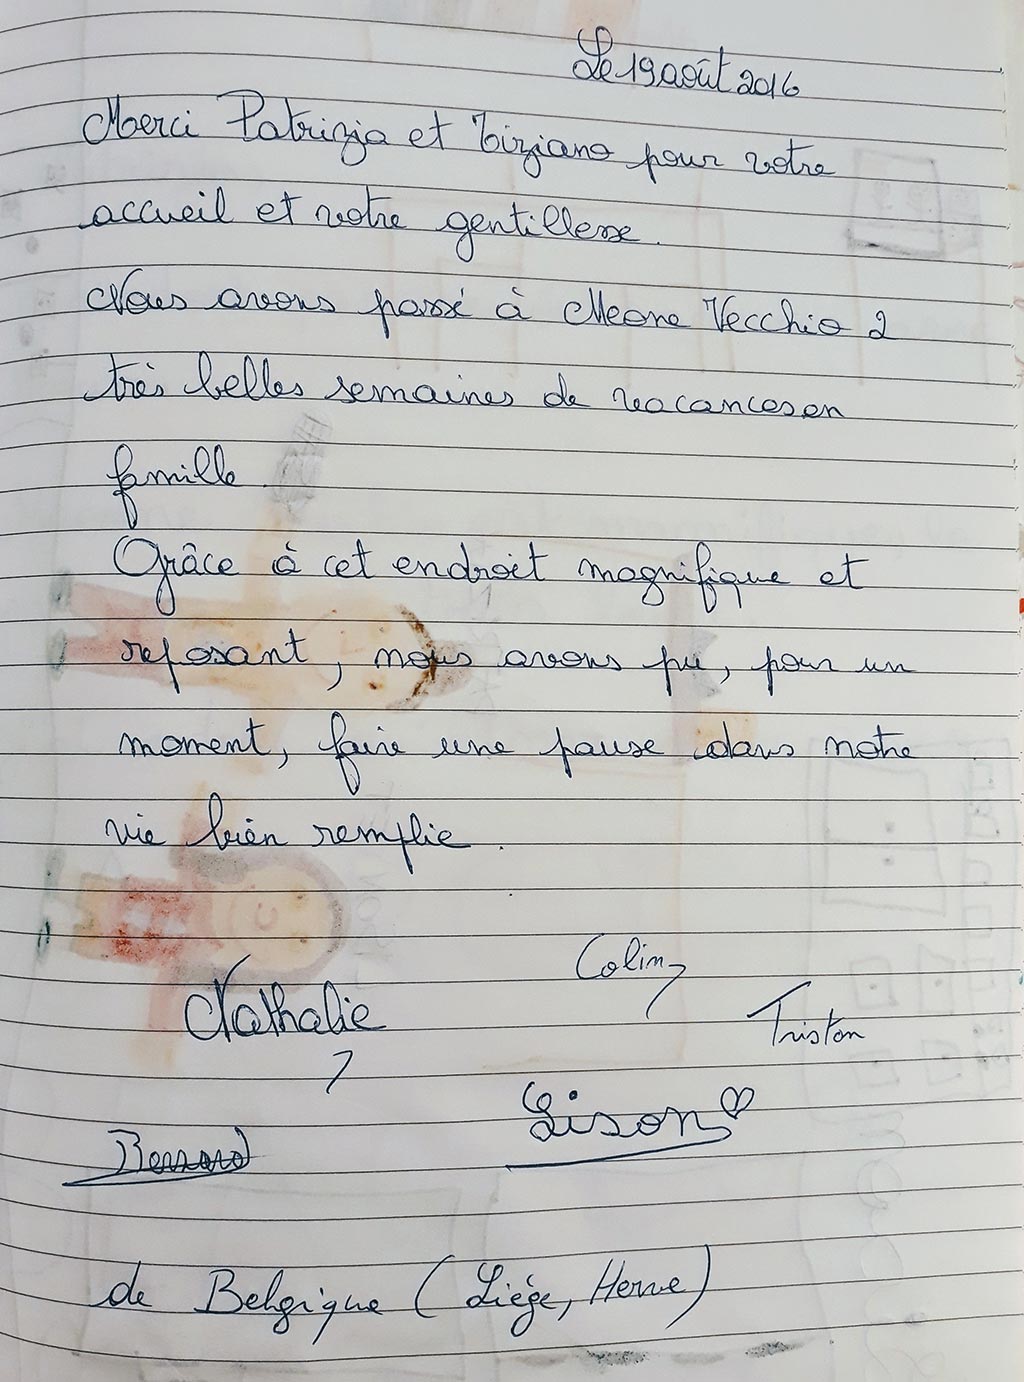 Le 19 août 2016
Merci Patrizia et Tiziano pour votre
accueil et votre gentillesse.
Nous avons passé à Meone Vecchio 2
très belles semaines de vacances en
famille.
Grâce à cet endroit magnifique et
reposant, nous avons pu, pour un
moment, faire une pause dans notre
vie bien remplie.
Colin
Nathalie
Tristan
Lison ♡
Bernard
de Belgique (Liège, Herve)